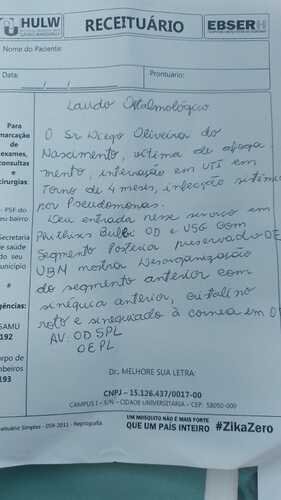 HULW
RECEITUÁRIO
EBSERH
Nome do Paciente:
Data: / /
Prontuário:
Para
marcação
de
exames,
consultas
e
cirurgias
PSF do
seu bairro
Secretaria
de saúde
do seu
município
#
SAMU
192
193
Laudo Oftalmológico
O Sr Diego Oliveira do
Nascimento, vítima de afoga
mento, internação em UTI em
Torno de 4 meses, infecção sistêmi
por Pseudomonas.
Deu entrada nesse serviço em
Phithisis Bulbi OD e USG com
Segmento Posterior preservado OE
UBM mostra Desorganização
do segmento anterior com
sinéquia anterior, cristalino
roto e sinequiado à córnea em O
AV: OD SPL
OE PL
Dr. MELHORE SUA LETRA:
CNPJ – 15.126.437/0017-00
CAMPUS I – S/N – CIDADE UNIVERSITÁRIA – CEP: 58050-000
UM MOSQUITO NÃO É MAIS FORTE
QUE UM PAÍS INTEIRO #ZikaZero